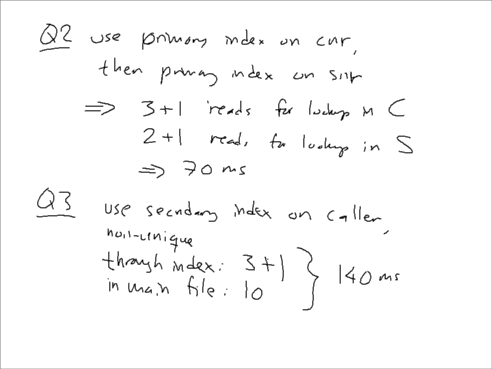 Q2 use primary index on cnr,
then primary index on snr
⇒ 3+1 reads for lookup in C
2+1 reads for lookup in S
⇒ 70 ms
Q3 use secondary index on caller,
non-unique
through index: 3+1
in main file: 10
} 140 ms